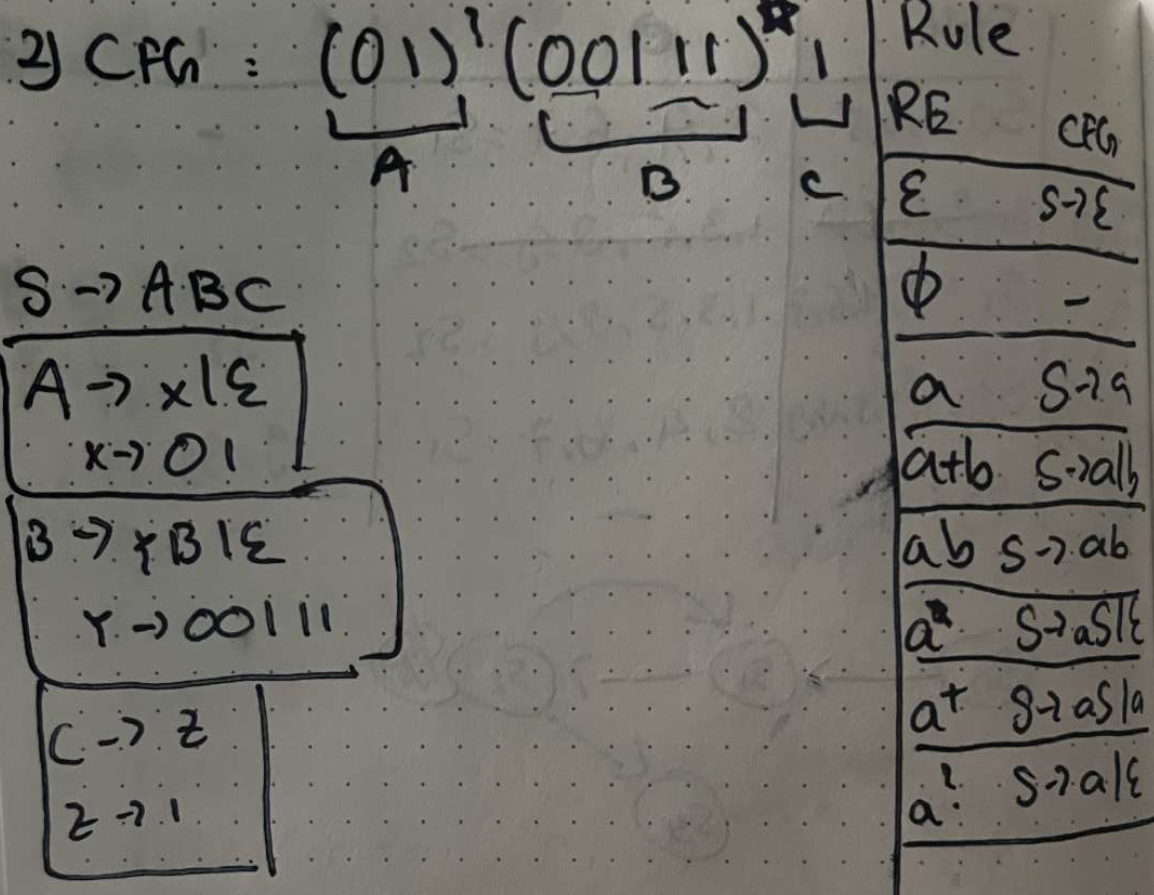 2) CFG : (01)? (00111)* 1
A B C
S → ABC
A → x|ε
x → 01
B → YB|ε
Y → 00111
C → Z
Z → 1
Rule
RE CFG
ε S→ε
ϕ -
a S→a
a+b S→a|b
ab S→ab
a* S→aS|ε
a+ S→aS|a
a? S→a|ε